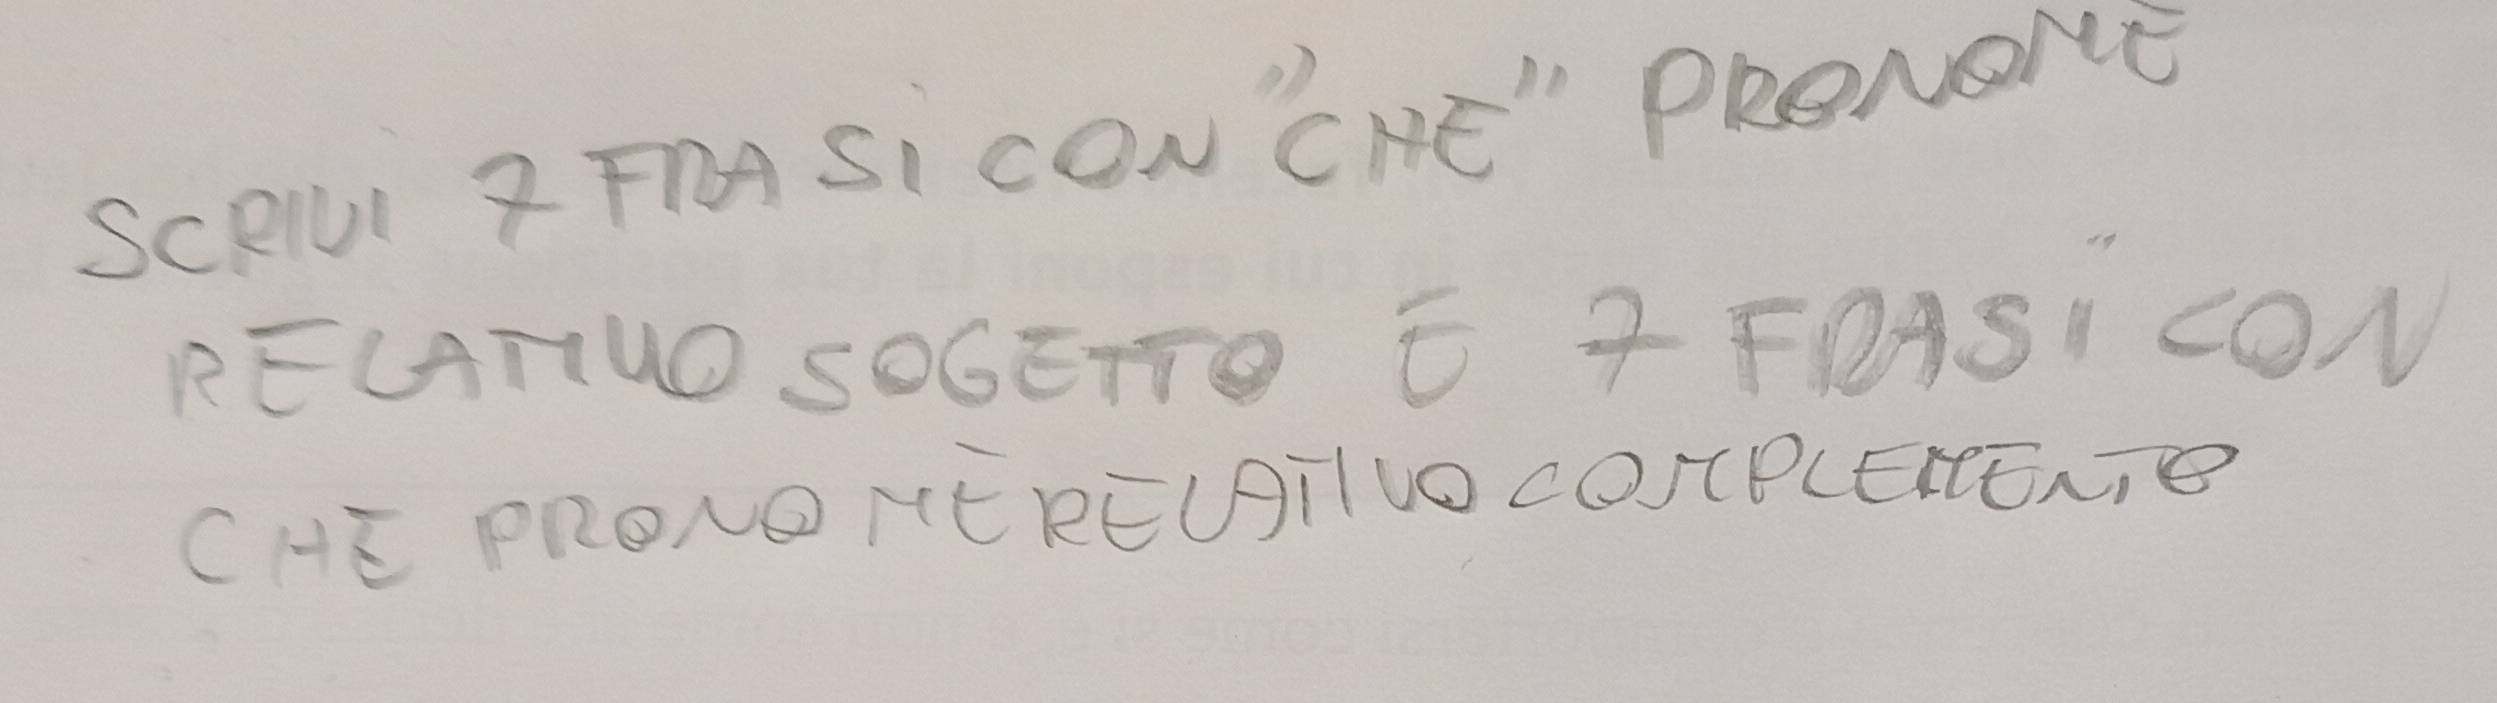 SCRIVI 7 FRASI CON "CHE" PRONOME
RELATIVO SOGETTO E 7 FRASI CON
CHE PRONOME RELATIVO COMPLEMENTO